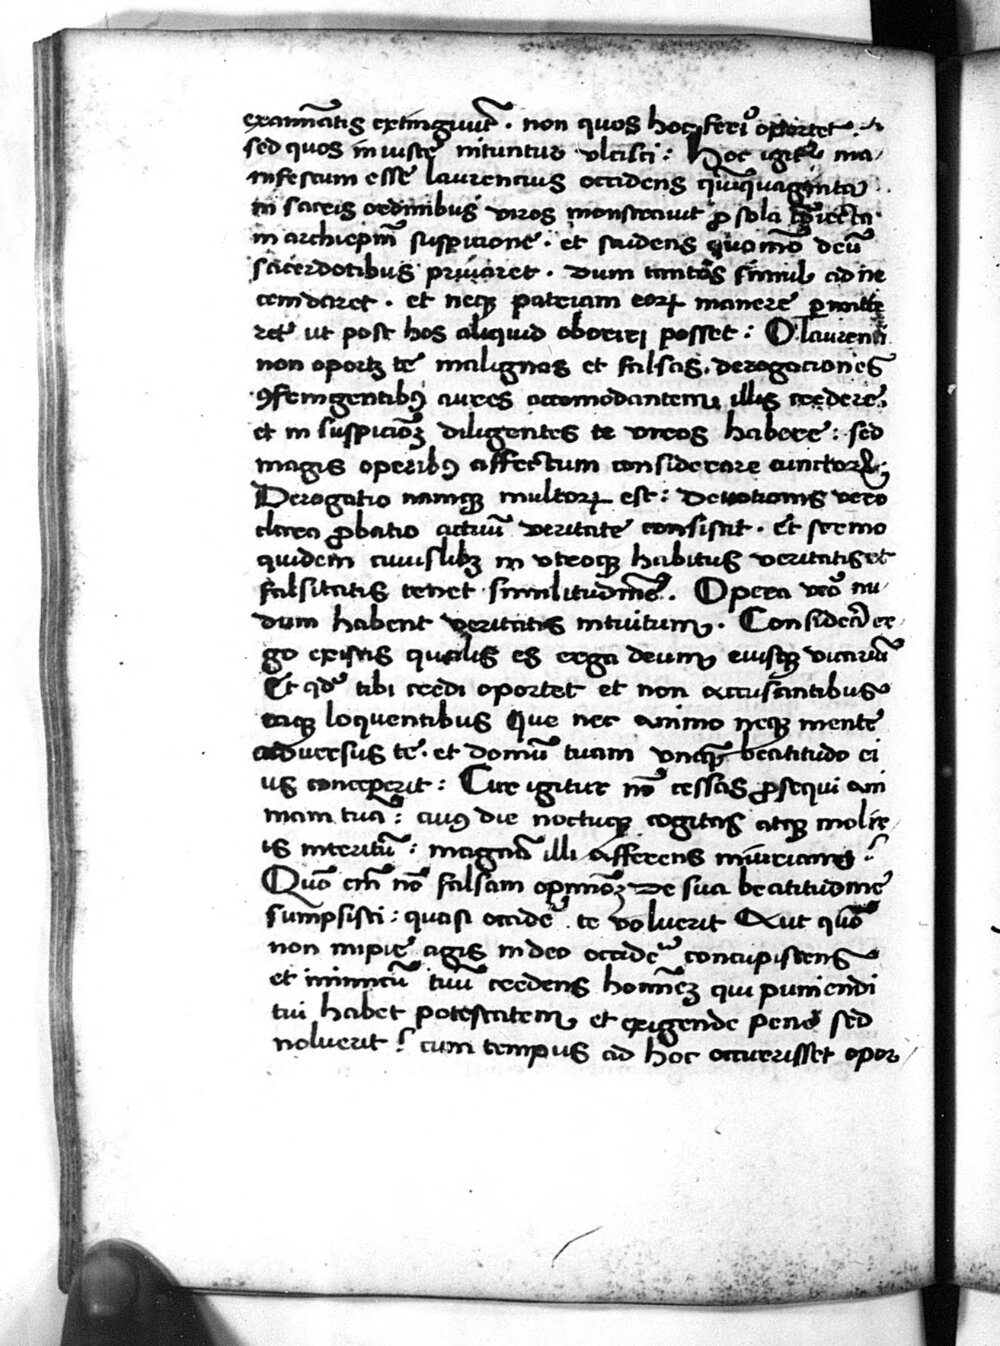 exanimatis extinguunt̃ . non quos hoc ferĩ oportet .
sed quos iniuste nituntur vlcisci : Hoc igit̃ ma/
nifestum esse laurencius occidens quinquaginta
in sacris ordinibus viros monstrauit ꝓ sola
in archiep̃m suspicione . et studens quomõ deũ
sacerdotibus priuaret . dum tantos simul ad ne
cem daret . et neqꝫ patriam eoꝝ manere ꝑmitte
ret ut post hos aliquid oboriri posset : O laurenti
non oportꝫ te malignas et falsas derogaciones
ꝯfringentibꝰ aures accomodantem illis credere
et in suspiciõꝫ diligentes te viros habere : sed
magis operibꝰ affectum considerare cunctoꝝ ;
Derogatio namqꝫ multoꝝ est : Deuotionis vero
clara ꝓbatio actuũ veritate consistit . Et sermo
quidem cuiuslibꝫ in vtroqꝫ habitus veritatis et
falsitatis tenet similitudinẽ . Opera vˀo nu/
dum habent veritatis intuitum . Considera er/
go existis qualis es erga deum eiusqꝫ vicariũ
Et qd̃ tibi credi oportet et non accusantibus
eaqꝫ loquentibus que nec animo neqꝫ mente
aduersus te . et domũ tuam vnqꝫ beatitudo ei
us conceperit : Cur igitur nõ cessas ꝓsequi ani
mam tuã : cuiꝰ die noctuqꝫ cogitas atqꝫ molir/
is interitũ : magnã illi afferens iniuriam ?
Quõ em̃ nõ falsam opiniõꝫ de sua beatitudine
sumpsisti : quasi occidẽ te voluerit Aut quõ
non impie agis in deo occidẽ concupiscens
et inimicũ tuũ credens hominẽꝫ qui puniendi
tui habet potestatem et exigende pene sed
noluerit ? cum tempus ad hoc occurrisset opor/